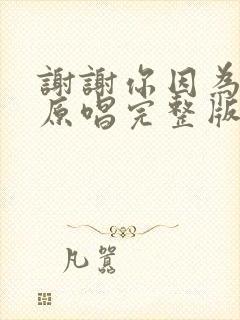 謝謝你因為
原唱完整版
凡囂